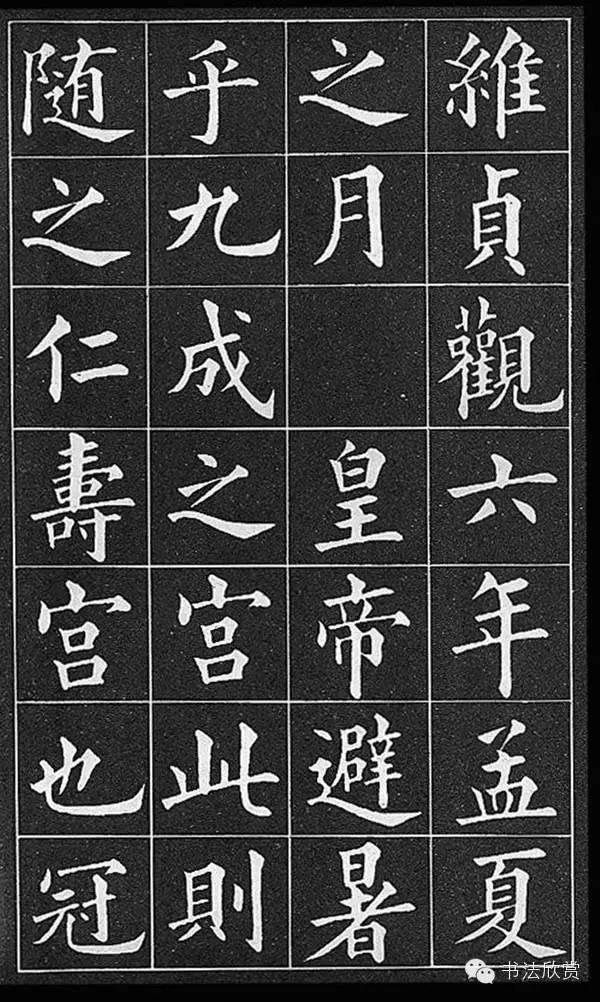 維貞觀六年孟夏
之月 皇帝避暑
乎九成之宫此則
随之仁壽宫也冠
书法欣赏